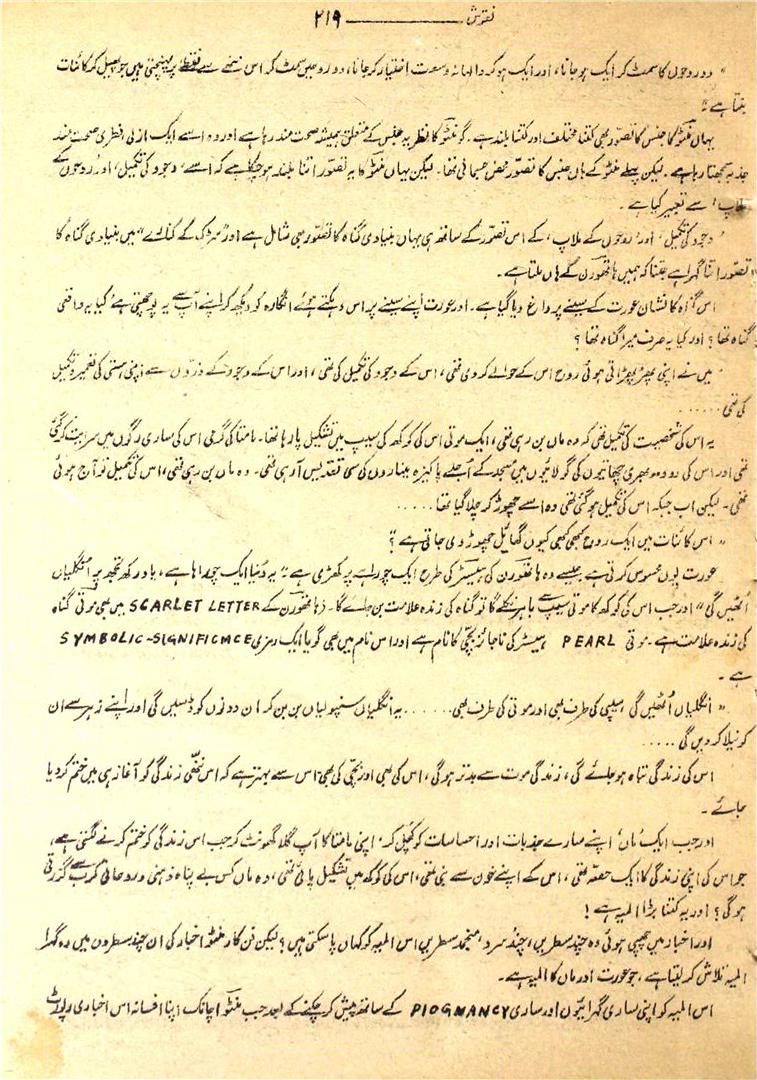 نقوش ——— ۲۱۹
" دو روحوں کا سمٹ کر ایک ہو جانا، اور ایک ہو کر والہانہ وسعت اختیار کر جانا، دو روحیں سمٹ کر اس ننھے سے نقطے پر پہنچتی ہیں جو پھیل کر کائنات
بنتا ہے "
یہاں منٹو کا جنس کا تصور بھی کتنا مختلف اور کتنا بلند ہے۔ گو منٹو کا نظریہ جنس کے متعلق ہمیشہ صحت مند رہا ہے اور وہ اسے ایک ازلی فطری صحت مند
جذبہ سمجھتا رہا ہے۔ لیکن پہلے منٹو کے ہاں جنس کا تصور محض جسمانی تھا۔ لیکن یہاں منٹو کا یہ تصور اتنا بلند ہو چکا ہے کہ اسے، 'وجود کی تکمیل' اور 'روحوں کے
ملاپ' سے تعبیر کیا ہے۔
'وجود کی تکمیل' اور 'روحوں کے ملاپ'، کے اس تصور کے ساتھ ہی یہاں بنیادی گناہ کا تصور بھی شامل ہے اور "سڑک کے کنارے" میں بنیادی گناہ کا
تصور اتنا گہرا ہے جتنا کہ ہمیں ہاتھورن کے ہاں ملتا ہے۔
اس گناہ کا نشان عورت کے سینے پر داغ دیا گیا ہے۔ اور عورت اپنے سینے پر اس دہکتے ہوئے انگارہ کو دیکھ کر اپنے آپ سے یہ پوچھتی ہے 'کیا یہ واقعی
گناہ تھا؟ اور کیا یہ صرف میرا گناہ تھا؟
'میں نے اپنی پھڑپھڑاتی ہوئی روح اس کے حوالے کر دی تھی، اس کے وجود کی تکمیل کی تھی، اور اس کے وجود کے ذروں سے اپنی ہستی کی تعمیر و تکمیل
کی تھی ......
یہ اس کی شخصیت کی تکمیل تھی کہ وہ ماں بن رہی تھی، ایک موتی اس کی کوکھ کی سیپ میں تشکیل پا رہا تھا۔ مامتا کی گرمی اس کی ساری رگوں میں سرایت کر گئی
تھی اور اس کی دودھ بھری چھاتیوں کی گولائیوں میں مسجد کے اُجلے پاکیزہ میناروں کی سی تقدیس آ رہی تھی۔ وہ ماں بن رہی تھی، اس کی تکمیل تو آج ہوئی
تھی۔ لیکن اب جبکہ اس کی تکمیل ہو گئی تھی وہ اسے چھوڑ کر چلا گیا تھا .....
" اس کائنات میں ایک روح کبھی کبھی کیوں گھائل چھوڑ دی جاتی ہے ؟"
عورت یوں محسوس کرتی ہے جیسے وہ ہاتھورن کی ہیسٹر کی طرح ایک چوراہے پر کھڑی ہے " یہ دُنیا ایک چوراہا ہے، یاد رکھ تجھ پر انگلیاں
اُٹھیں گی" اور جب اس کی کوکھ کا موتی سیپ سے باہر نکلے گا تو گناہ کی زندہ علامت بن جائے گا۔ (ہاتھورن کے SCARLET LETTER میں بھی موتی گناہ
کی زندہ علامت ہے۔ موتی PEARL ہیسٹر کی ناجائز بچی کا نام ہے اور اس نام میں بھی گویا ایک رمزی SYMBOLIC-SIGNIFICMCE
ہے۔
" انگلیاں اُٹھیں گی، سیپی کی طرف بھی اور موتی کی طرف بھی ...... یہ انگلیاں سنپولیاں بن بن کر ان دونوں کو ڈسیں گی اور اپنے زہر سے ان
کو نیلا کر دیں گی .....
اس کی زندگی تباہ ہو جائے گی، زندگی موت سے بدتر ہوگی، اس کی بھی اور بچی کی بھی اس سے بہتر ہے کہ اس ننھی زندگی کو آغاز ہی میں ختم کر دیا
جائے۔
اور جب ایک 'ماں' اپنے سارے جذبات اور احساسات کو کچل کر، اپنی مامتا کا آپ گلا گھونٹ کر جب اس زندگی کو ختم کرنے لگتی ہے،
جو اس کی اپنی زندگی کا ایک حصہ تھی، اس کے اپنے خون سے بنی تھی، اس کی کوکھ میں تشکیل پائی تھی، وہ ماں کس بے پناہ ذہنی و روحانی کرب سے گزرتی
ہوگی؟ اور یہ کتنا بڑا المیہ ہے!
اور اخبار میں چھپی ہوئی وہ چند سطریں، چند سرد، منجمد سطریں اس المیہ کو کہاں پا سکتی ہیں؟ لیکن فن کار منٹو اخبار کی ان چند سطروں میں وہ گہرا
المیہ تلاش کر لیتا ہے، جو عورت اور ماں کا المیہ ہے۔
اس المیہ کو اپنی ساری گہرائیوں اور ساری PIOGNANCY کے ساتھ پیش کر چکنے کے بعد جب منٹو اچانک اپنا افسانہ اس اخباری رپورٹ